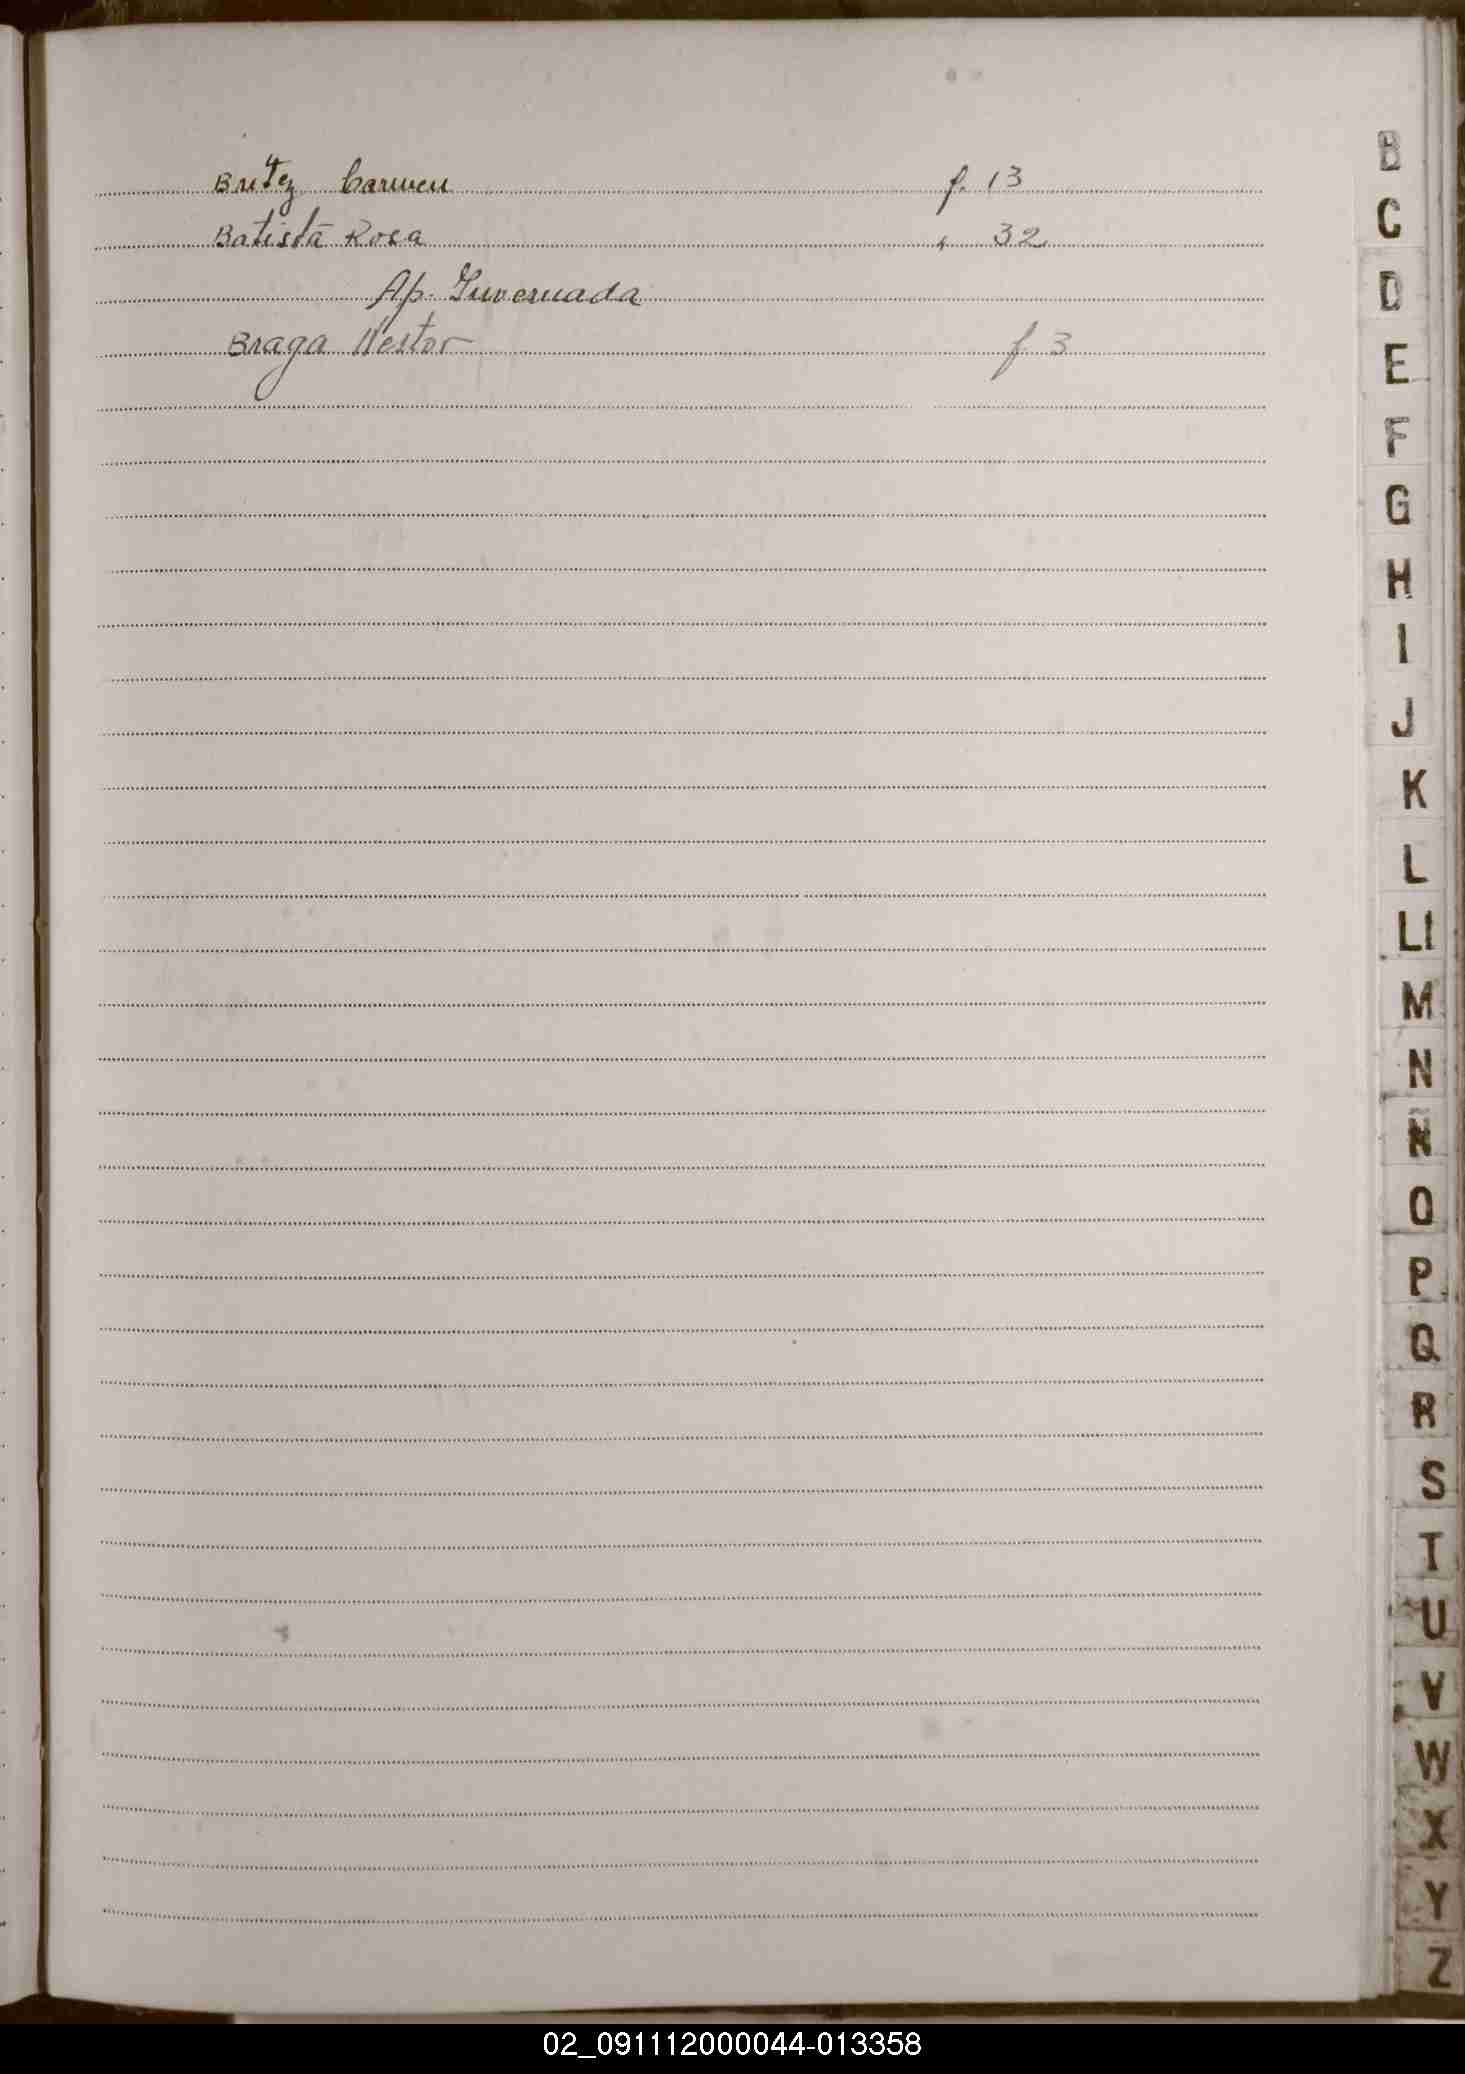 Britez Carmen f. 13
Batista Rosa " 32
Ap. Invernada
Braga Nestor f 3
B
C
D
E
F
G
H
I
J
K
L
Ll
M
N
Ñ
O
P
Q
R
S
T
U
V
W
X
Y
Z
02_091112000044-013358